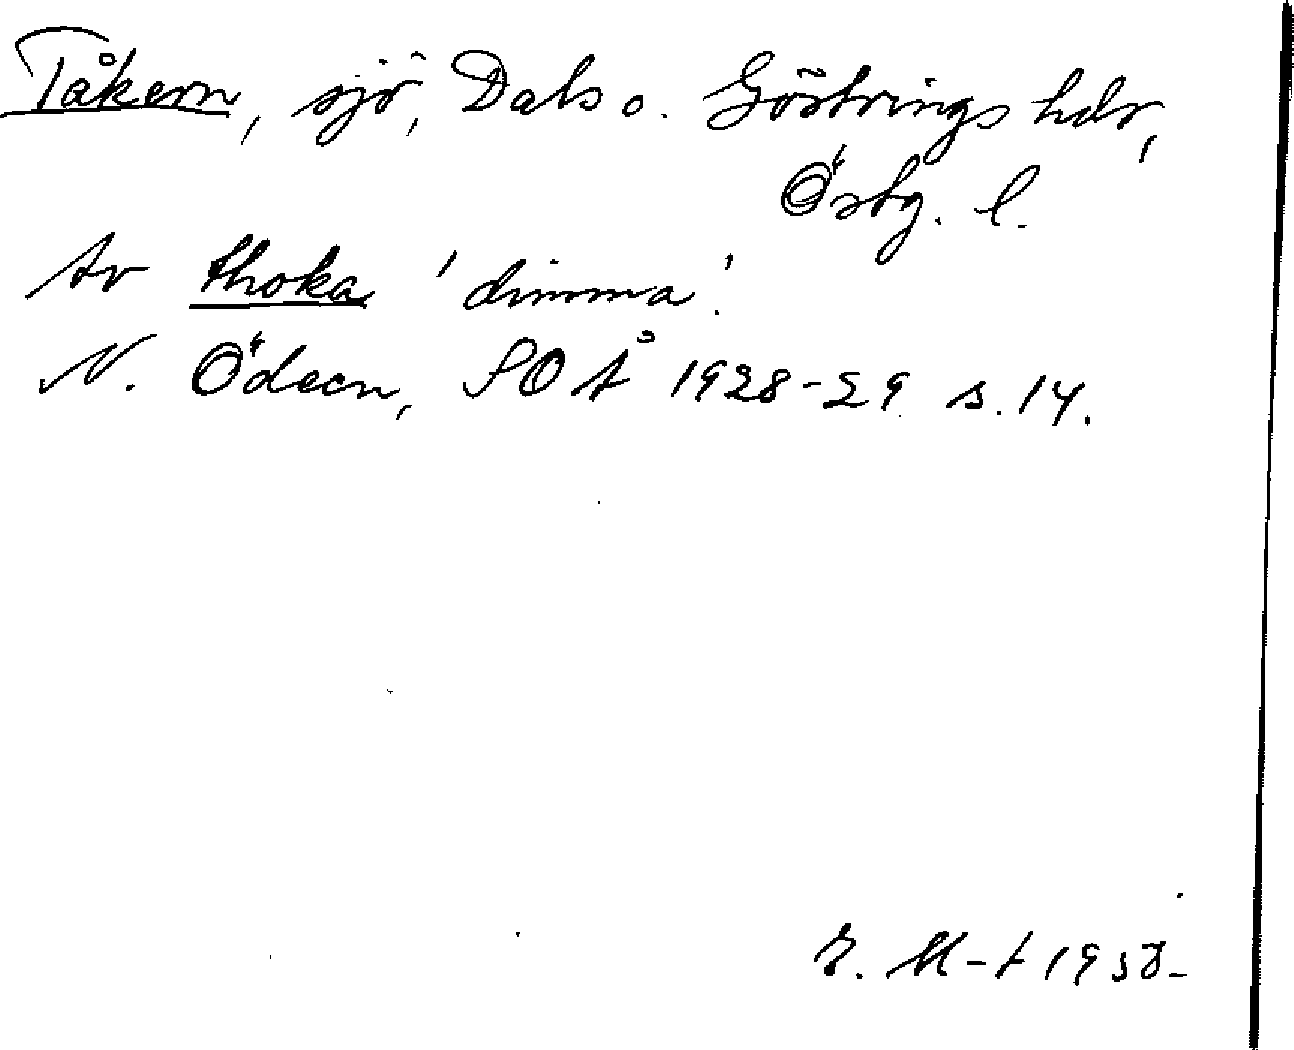 Tåkern, sjö, Dals o. Göstrings hdr,
Östg. l.
Av thoka 'dimma'.
N. Ödeen, SOÅ 1928-29 s. 14.
M-t 19